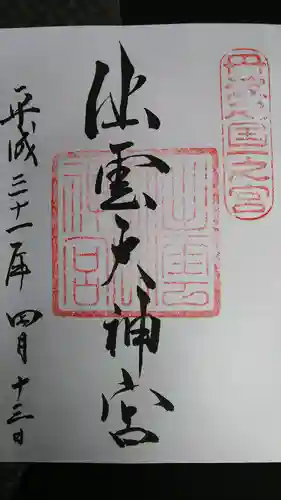 丹波国一之宮
出雲大神宮
平成三十一年四月十三日